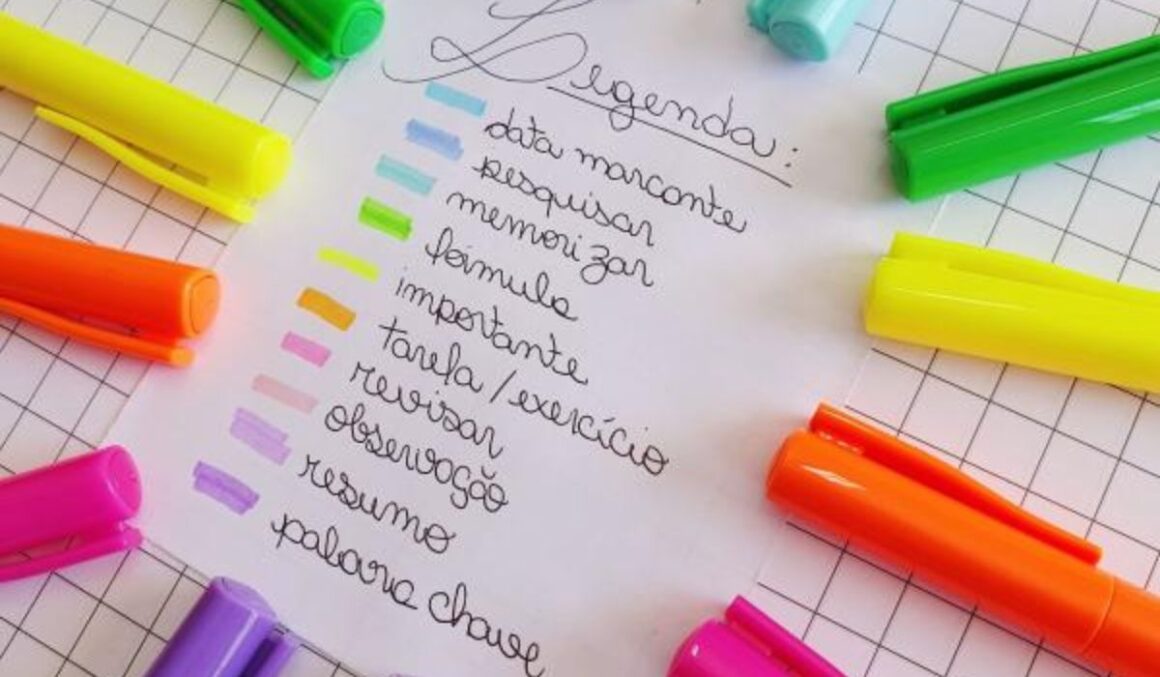 Legenda:
data marcante
pesquisar
memorizar
fórmula
importante
tarefa / exercício
revisar
observação
resumo
palavra chave